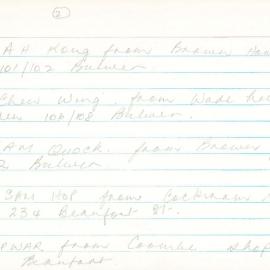 2
A H Kong from Brown Hou
101/102 Bulwer.
Chew Wing. from Wade ho
106/108 Bulwer.
AM QUOCK. from Brower
2 Bulwer.
SAM HOP from Cockram
234 Beaufort St.
PWAR from Coombe shop
Beaufort.